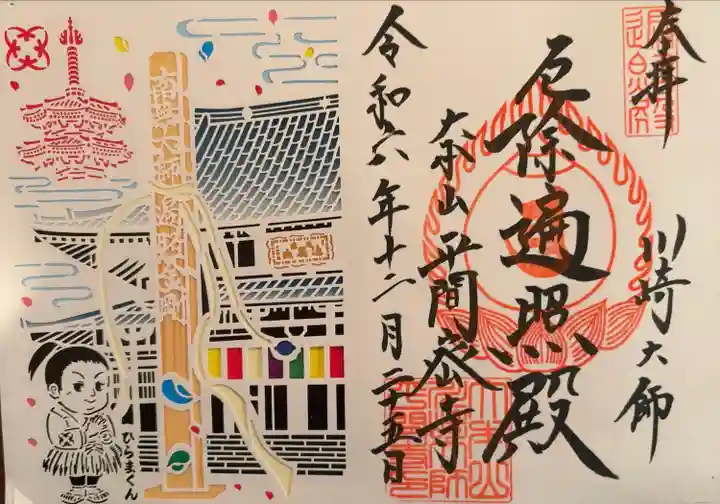 奉拝
川崎大師
厄除遍照殿
大本山平間寺
令和六年十二月二十五日
南無大師遍照金剛
ひらまくん